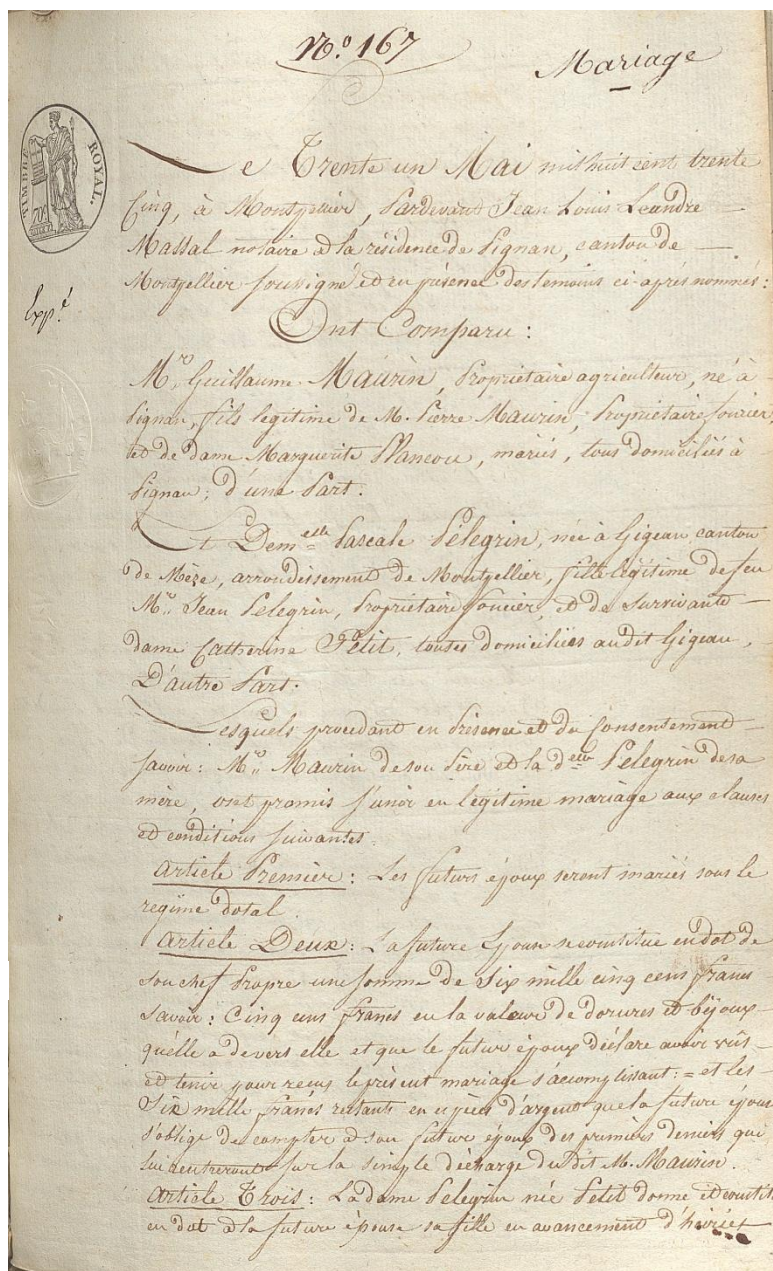 N.º 167
Mariage
TIMBRE ROYAL.
Le Trente un Mai mil huit cent trente
Cinq, à Montpellier, Pardevant Jean Louis Leandre
Massal notaire à la résidence de Pignan, canton de
Montpellier soussigné et en présence des temoins ci-après nommés :
Exp.é
Ont Comparu :
M.r Guillaume Maurin, Propriétaire agriculteur, né à
Pignan, fils legitime de M. Pierre Maurin, Propriétaire foncier,
et de dame Marguerite Plancou, mariés, tous domiciliés à
Pignan ; d'une Part.
Et Dem.elle Pascale Pélegrin, née à Gigean canton
de Mèze, arrondissement de Montpellier, fille légitime de feu
M.r Jean Pelegrin, Propriétaire foncier, et de survivante
dame Catherine Petit, toutes domiciliées audit Gigean,
D'autre Part.
Lesquels procédant en Présence et du consentement
savoir : M.r Maurin de son Père et la d.elle Pelegrin de sa
mère, ont promis s'unir en légitime mariage aux clauses
et conditions suivantes.
Article Premier : Les futurs époux seront mariés sous le
regime dotal.
Article Deux : La future Epouse se constitue en dot de
son chef Propre une somme de Six mille cinq cens francs
savoir : Cinq cens francs en la valeur de dorures et bijoux
qu'elle a devers elle et que le futur époux déclare avoir vûs
et tenir pour reçus le présent mariage s'accomplissant : = et les
Six mille francs restants en espèces d'argent que la future épouse
s'oblige de compter à son futur époux des premiers deniers qui
lui rentreront sur la simple décharge du dit M. Maurin.
Article Trois : La dame Pelegrin née Petit donne et constitue
en dot à la future épouse sa fille en avancement d'hoirie